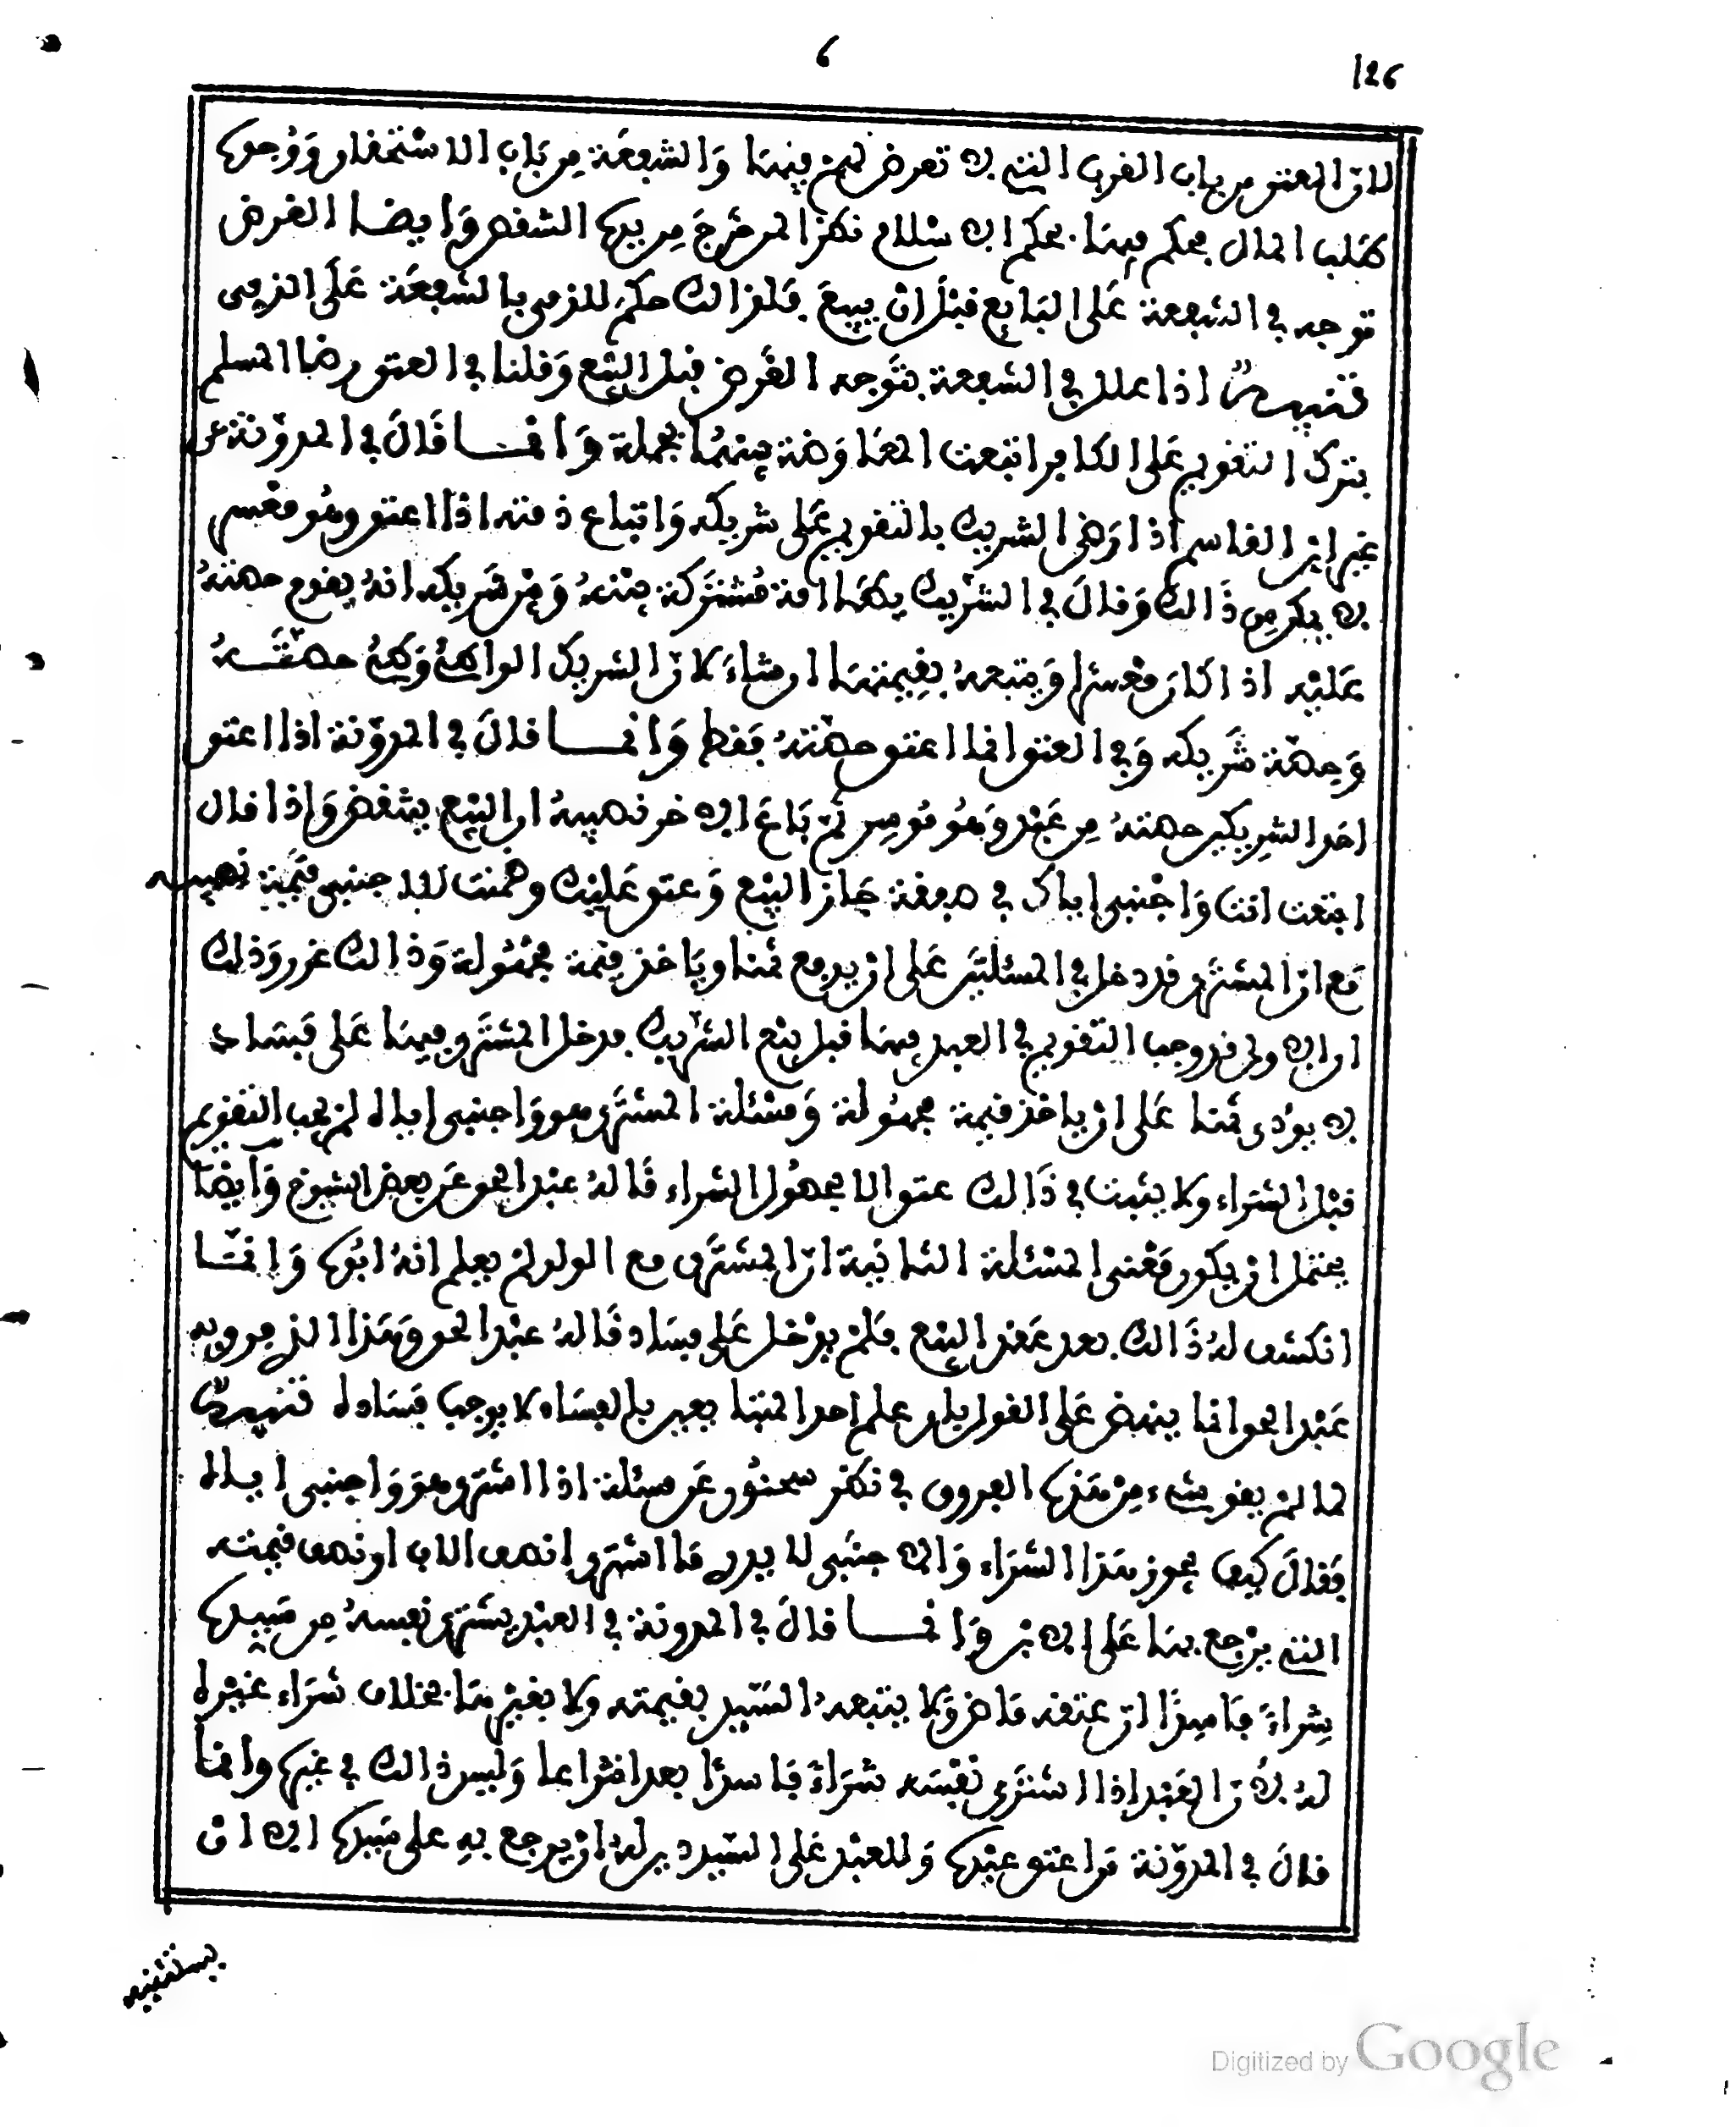 126
6
لان العتق من باب القرب التي لا تعرض لهم فيها والشفعة من باب الاستحقاق ووجوه
طلب المال يحكم فيها بحكم الاسلام نظرا لمن خرج من يده الشقص وايضا الفرض
توجه في الشفعة على البايع قبل ان يبيع فلذالك حكم للذمي بالشفعة على الذمي
تنبيه اذا علل في الشفعة بتوجه الفرض قبل البيع وقلنا في العتق رضا المسلم
بترك التقويم على الكافر اتبعت المعاوضة بينهما بجملة وانما قال في المدونة عن
غير ابن القاسم اذا رضى الشريك بالتقويم على شريكه واتباع ذمته اذا اعتق وهو معسر
لا يكن ذالك وقال في الشريك يطا امة مشتركة بينه وبين شريكه انه يقوم حصته
عليه اذا كان معسرا ويتبعه بقيمتها ان شاء لان الشريك الواطئ وطئ حصته
وحصة شريكه وفي العتق انما اعتق حصته فقط وانما قال في المدونة اذا اعتق
احد الشريكين حصته من عبد وهو موسر ثم باع الاخر نصيبه ان البيع ينقض واذا قال
ابتعت انت واجنبي اباك في صفقة جاز البيع وعتق عليك وضمنت للاجنبي قيمة نصيبه
مع ان المشتري قد دخل في المسئلتين على ان يدفع ثمنا وياخذ قيمة مجهولة وذالك غرر وذلك
ان الاولى قد وجب التقويم في العبد فيها قبل بيع الشريك فدخل المشتري فيها على فساد
لا يؤدي ثمنا على ان ياخذ قيمة مجهولة ومسئلة المشتري هو واجنبي اباه لم يجب التقويم
قبل الشراء ولا يثبت في ذالك عتق الا بحصول الشراء قاله عبد الحق عن بعض الشيوخ وايضا
يحتمل ان يكون معنى المسئلة الثانية ان المشتري مع الولد لم يعلم انه ابوه وانما
انكشف له ذالك بعد عقد البيع فلم يدخل على فساد قاله عبد الحق وهذا الذي فرق به
عبد الحق انما ينهض على القول بان علم احد المتبايعين بالفساد لا يوجب فساده تنبيه
لما لم يقو شيء من هذه الفروق في نظر سحنون عن مسئلة اذا اشترى هو واجنبي اباه
فقال كيف يجوز هذا الشراء والاجنبي لا يدري ما اشترى انصف الاب او نصف قيمته
التي يرجع بها على الابن وانما قال في المدونة في العبد يشتري نفسه من سيده
شراء فاسدا ان عتقه ماض ولا يتبعه السيد بقيمته ولا بغيرها بخلاف شراء غيره
له لان العبد اذا اشترى نفسه شراء فاسدا بعد انتزاعا وليس ذالك في غيره وانما
قال في المدونة من اعتق عبده وللعبد على السيد دين له ان يرجع به على سيده الا ان
يستثنيه
Digitized by Google